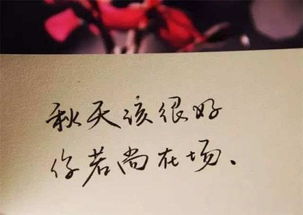 秋天该很好
你若尚在场、